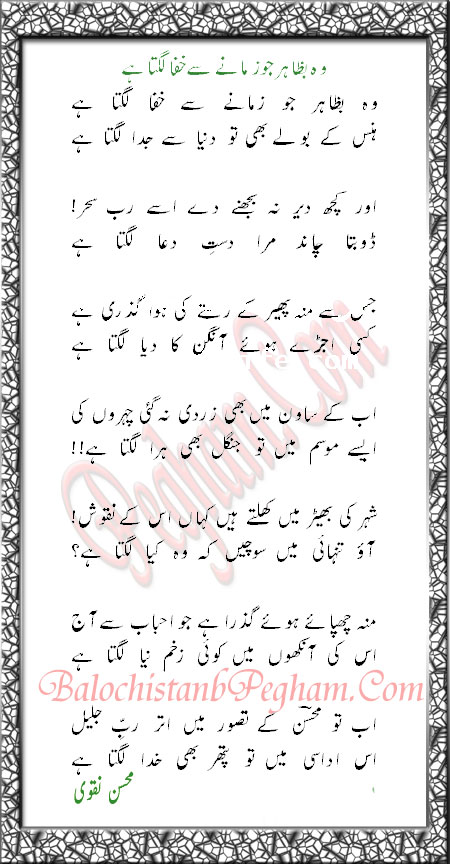 وہ بظاہر جو زمانے سے خفا لگتا ہے
وہ بظاہر جو زمانے سے خفا لگتا ہے
ہنس کے بولے بھی تو دنیا سے جدا لگتا ہے
اور کچھ دیر نہ بجھنے دے اسے رب سحر!
ڈوبتا چاند مرا دستِ دعا لگتا ہے
جس سے منہ پھیر کے رستے کی ہوا گذری ہے
کسی اجڑے ہوئے آنگن کا دیا لگتا ہے
اب کے ساون میں بھی زردی نہ گئی چہروں کی
ایسے موسم میں تو جنگل بھی ہرا لگتا ہے!!
شہر کی بھیڑ میں کھلتے ہیں کہاں اس کے نقوش!
آؤ تنہائی میں سوچیں کہ وہ کیا لگتا ہے؟
منہ چھپائے ہوئے گذرا ہے جو احباب سے آج
اس کی آنکھوں میں کوئی زخم نیا لگتا ہے
BalochistanbPegham.Com
اب تو محسنؔ کے تصور میں اتر ربِّ جلیل
اس اداسی میں تو پتھر بھی خدا لگتا ہے
محسن نقوی
Pegham.Com